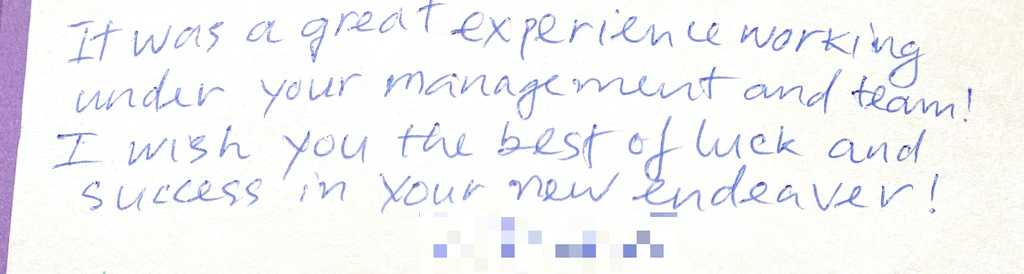 It was a great experience working
under your management and team!
I wish you the best of luck and
success in your new endeaver!